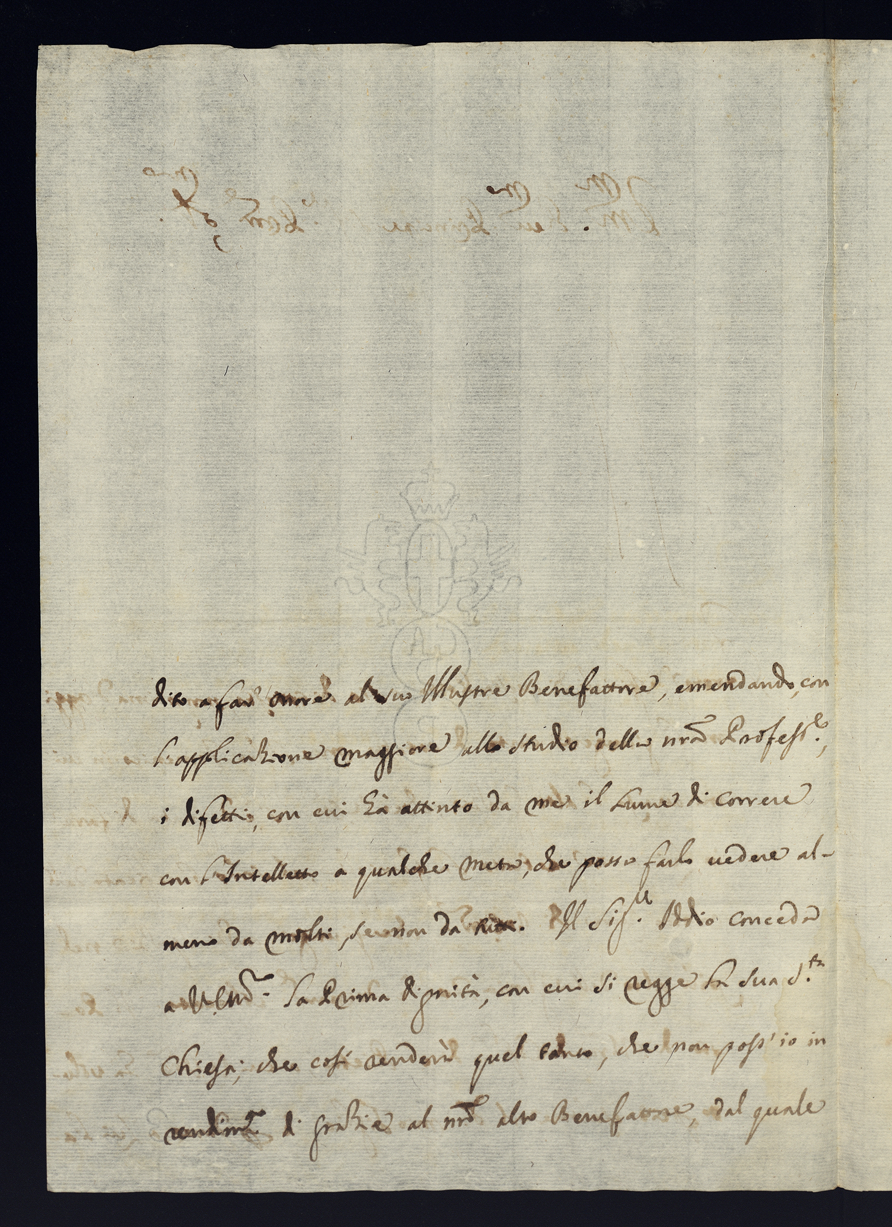 dito a far onore al suo Illustre Benefattore, emendando, con
l'applicazione maggiore allo studio della nrã Profess.e,
i difetti, con cui hà attinto da me il lume di correre
con l'Intelletto a qualche meta, che possa farlo vedere al-
meno da molti, se non da tutti. Il Sig.r Iddio conceda
a V. Em.a la Prima dignità, con cui si regge la sua S.ta
Chiesa, che così renderà quel tanto, che non poss' io in
rendim.to di grazie al nrõ alto Benefattore, dal quale